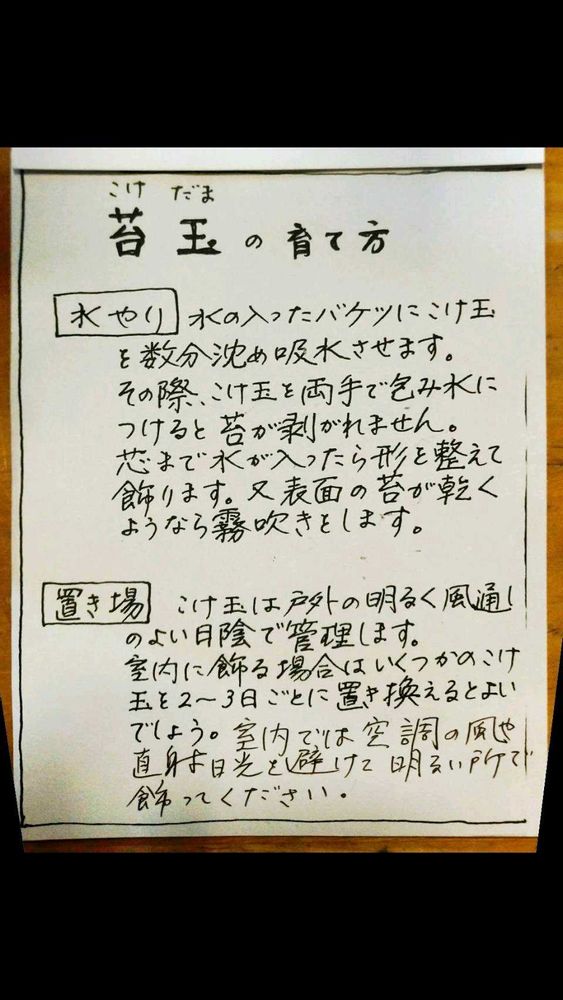 こけ だま
苔玉の育て方
水やり 水の入ったバケツにこけ玉
を数分沈め吸水させます。
その際、こけ玉を両手で包み水に
つけると苔が剥がれません。
芯まで水が入ったら形を整えて
飾ります。又表面の苔が乾く
ようなら霧吹きをします。
置き場 こけ玉は戸外の明るく風通し
のよい日陰で管理します。
室内に飾る場合はいくつかのこけ
玉を2〜3日ごとに置き換えるとよい
でしょう。室内では空調の風や
直射日光を避けて明るい所で
飾ってください。